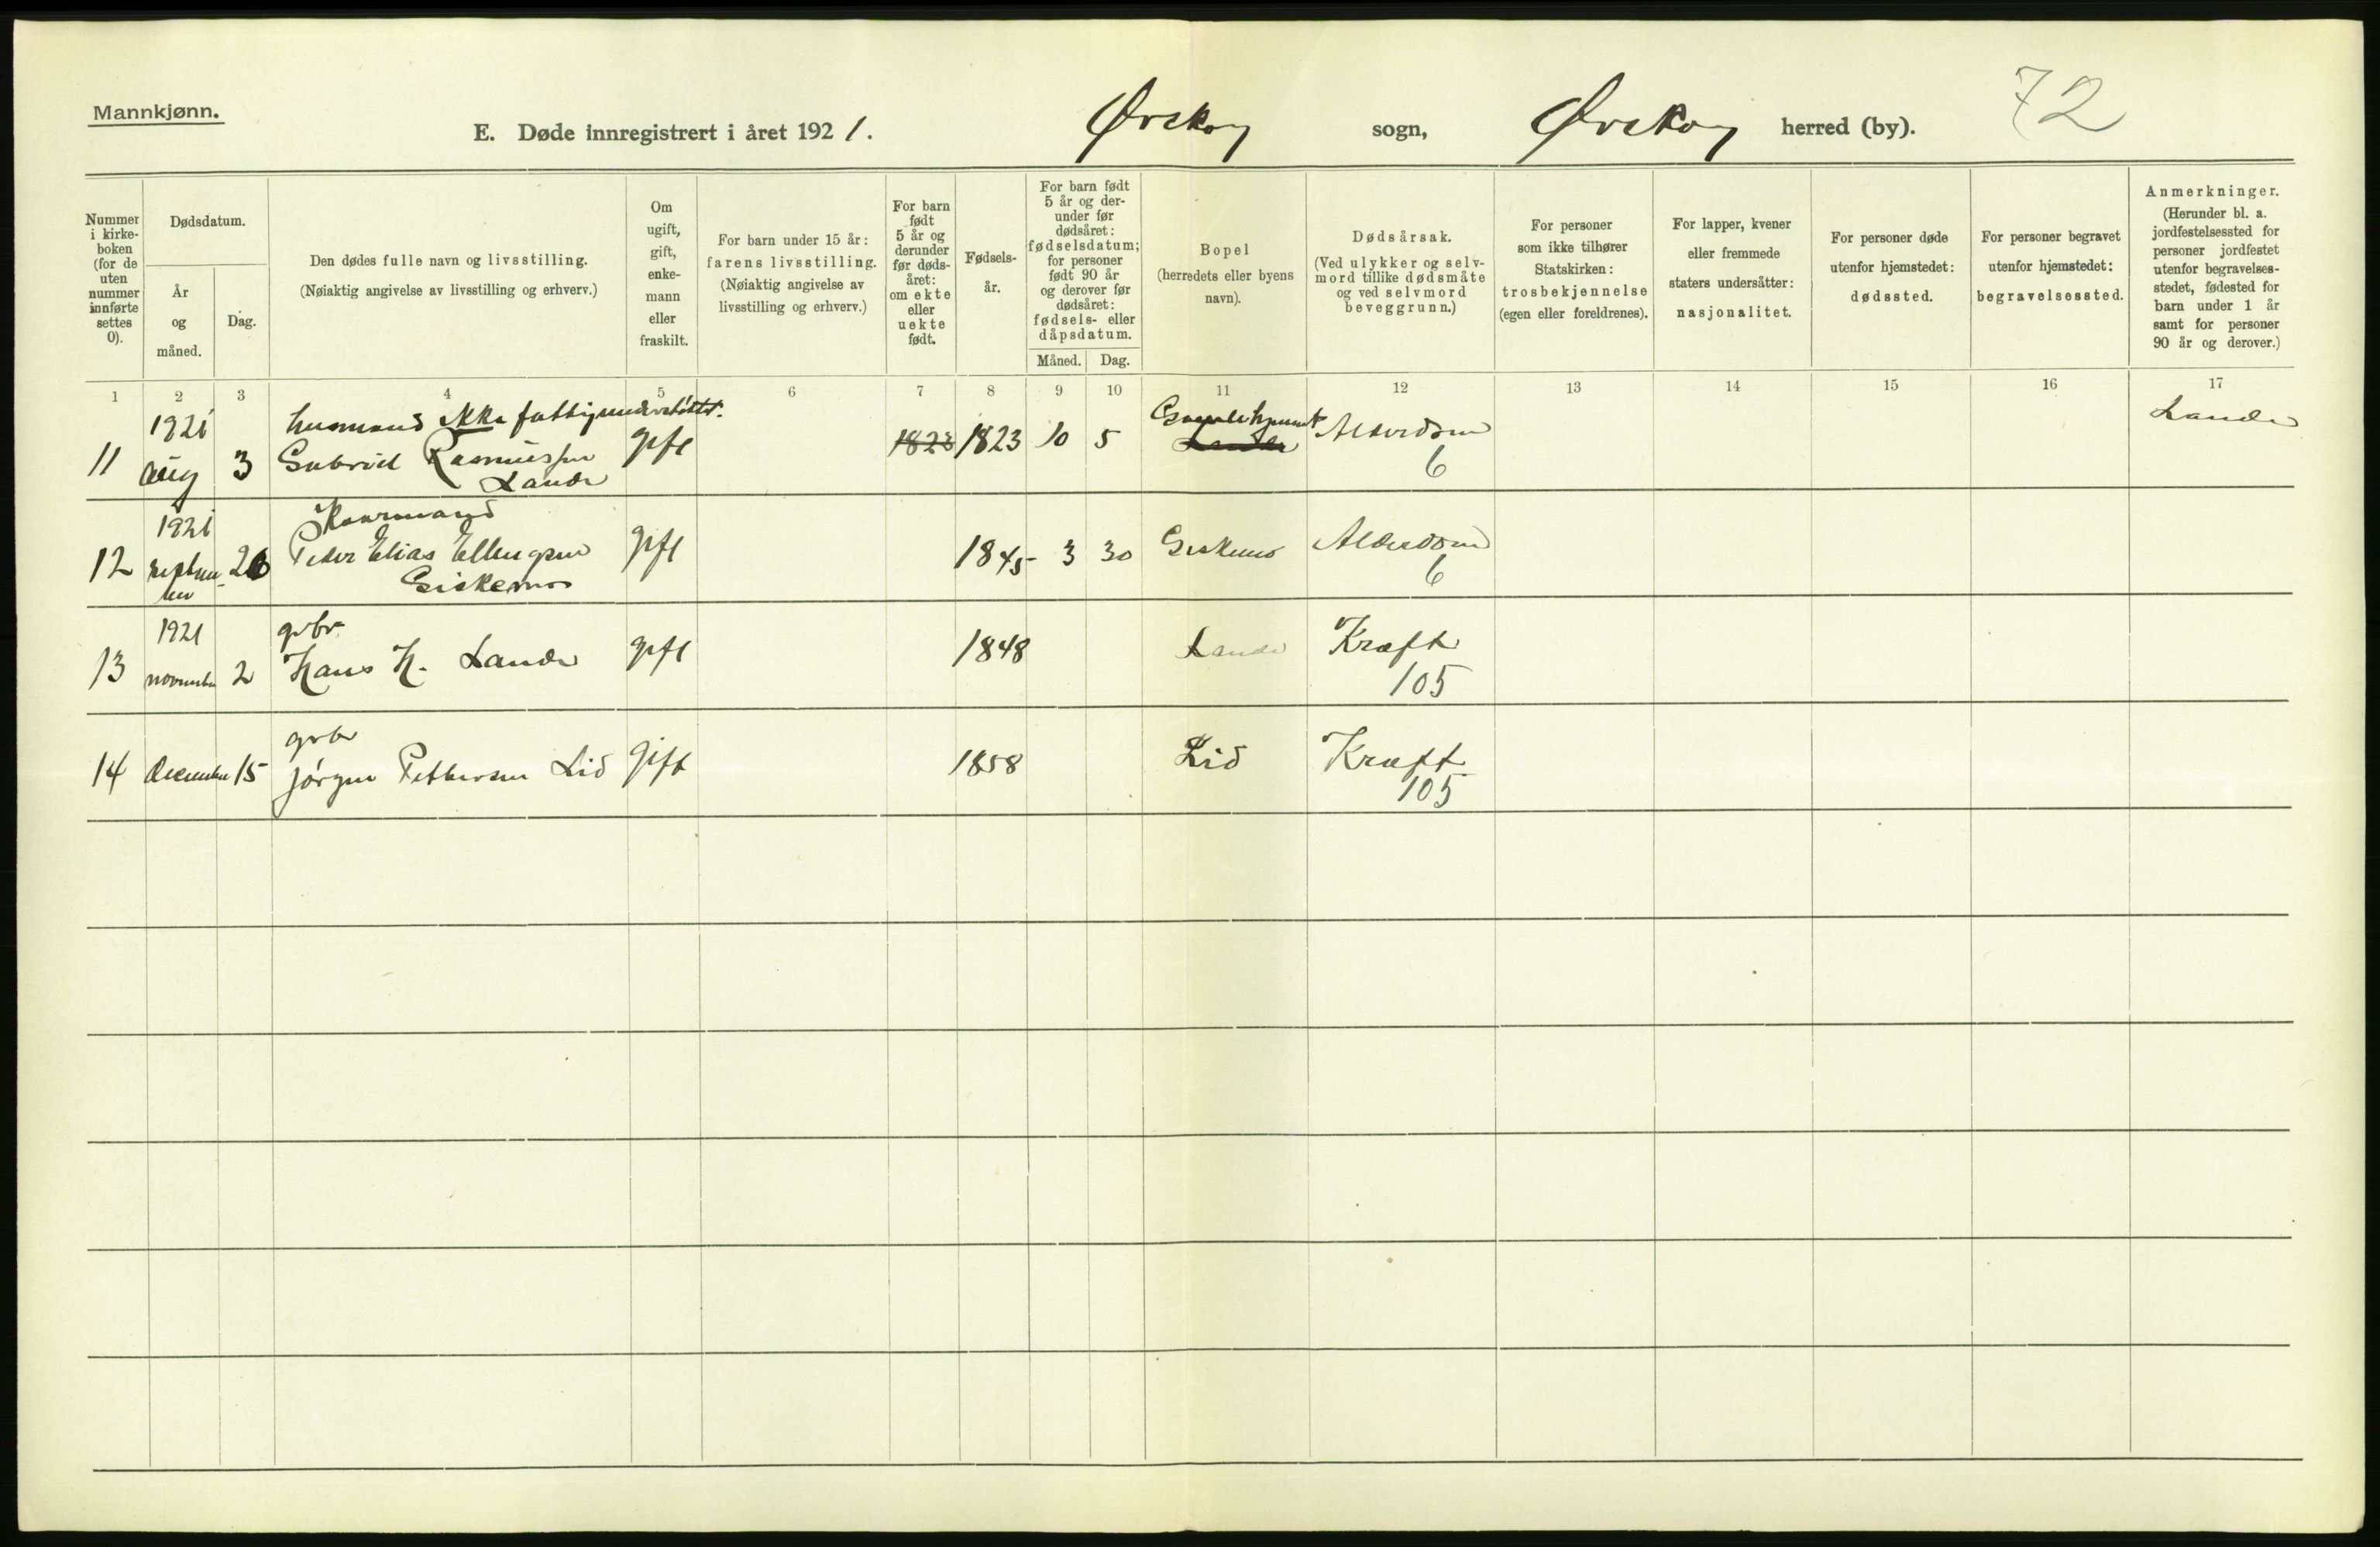 Mannkjønn.
E. Døde innregistrert i året 1921.
Ørskog sogn, Ørskog herred (by).
72
Nummer i kirke-
boken
(for de
uten
nummer
innførte
settes
0).
Dødsdatum.
År
og
måned.
Dag.
Den dødes fulle navn og livsstilling.
(Nøiaktig angivelse av livsstilling og erhverv.)
Om
ugift,
gift,
enke-
mann
eller
fraskilt.
For barn under 15 år:
farens livsstilling.
(Nøiaktig angivelse av
livsstilling og erhverv.)
For barn
født
5 år og
derunder
før døds-
året:
om ekte
eller
uekte
født.
Fødsels-
år.
For barn født
5 år og der-
under før
dødsåret:
fødselsdatum;
for personer
født 90 år
og derover før
dødsåret:
fødsels- eller
dåpsdatum.
Måned. Dag.
Bopel
(herredets eller byens
navn).
Dødsårsak.
(Ved ulykker og selv-
mord tillike dødsmåte
og ved selvmord
beveggrunn.)
For personer
som ikke tilhører
Statskirken:
trosbekjennelse
(egen eller foreldrenes).
For lapper, kvener
eller fremmede
staters undersåtter:
nasjonalitet.
For personer døde
utenfor hjemstedet:
dødssted.
For personer begravet
utenfor hjemstedet:
begravelsessted.
Anmerkninger.
(Herunder bl. a.
jordfestelsessted for
personer jordfestet
utenfor begravelses-
stedet, fødested for
barn under 1 år
samt for personer
90 år og derover.)
1 2 3 4 5 6 7 8 9 10 11 12 13 14 15 16 17
1921 husmand ikke fattigunderstøttet. Gamlehjemmet Lande
11 aug 3 Gabriel Rasmussen gift 1823 1823 10 5 Lande Alderdom
Lande 6
1921 Kaarmand
12 septem 26 Peder Elias Ellingsen gift 1845 3 30 Giskemo Alderdom
ber Giskemo 6
1921 gbr
13 november 2 Hans H. Lande gift 1848 Lande Kræft
105
gbr
14 december 15 Jørgen Pettersen Lid gift 1858 Lid Kræft
105